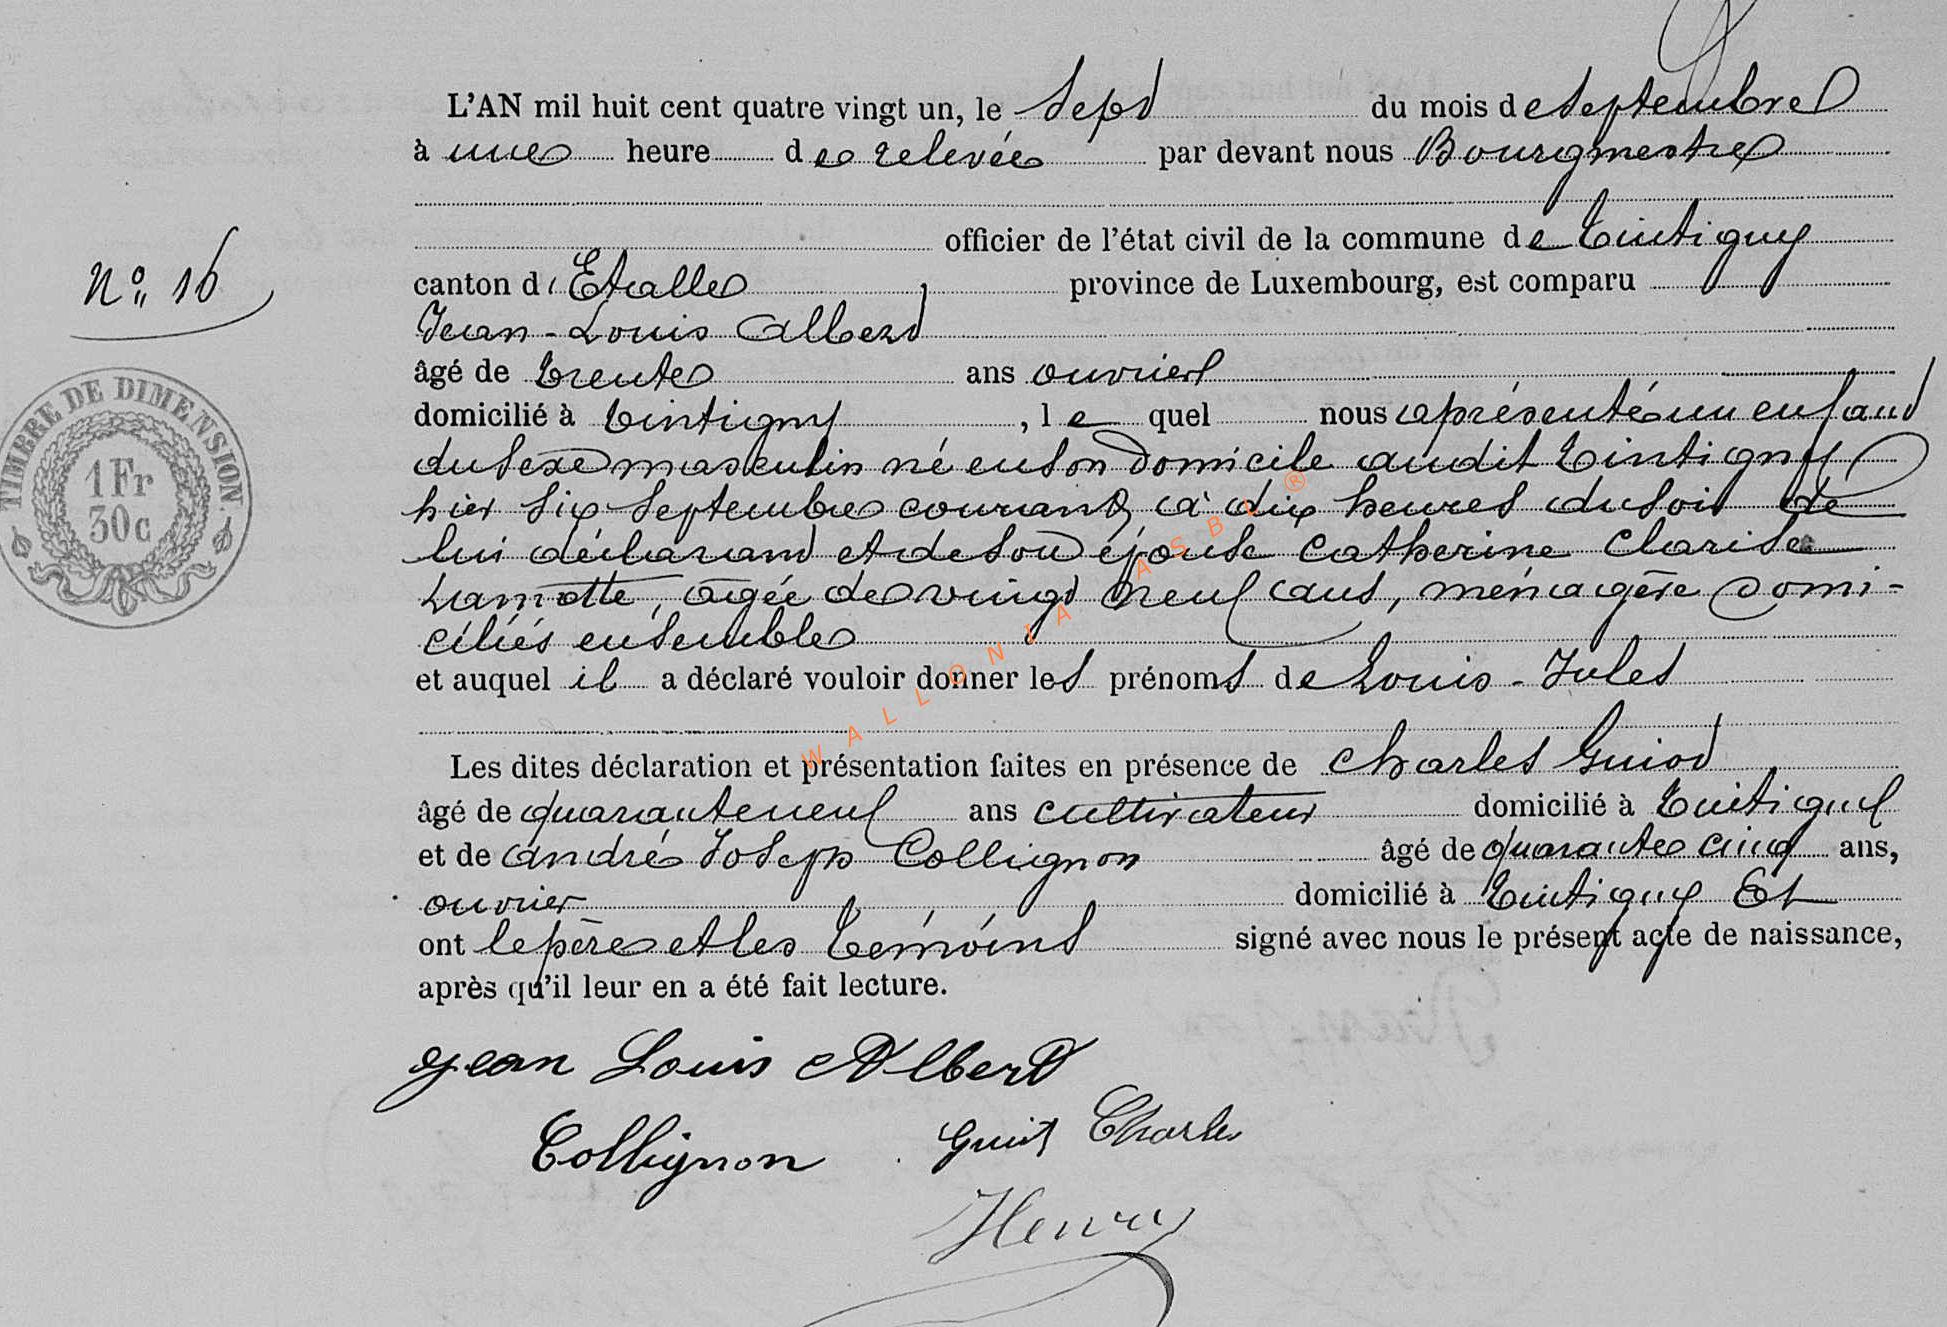 L'AN mil huit cent quatre vingt un, le Sept du mois de Septembre
à une heure de relevée par devant nous Bourgmestre
officier de l'état civil de la commune de Tintigny
No. 16
canton d'Etalle province de Luxembourg, est comparu
Jean-Louis Albert
âgé de trente ans ouvrier
domicilié à Tintigny, lequel nous a présenté un enfant
du sexe masculin né en son domicile audit Tintigny
hier six Septembre courant, à dix heures du soir de
lui déclarant et de son épouse Catherine Clarise
Lamotte, agée de vingt neuf ans, ménagère domi-
ciliés ensemble
et auquel il a déclaré vouloir donner les prénoms de Louis-Jules
Les dites déclaration et présentation faites en présence de Charles Guiot
âgé de quarante neuf ans cultivateur domicilié à Tintigny
et de André Joseph Collignon âgé de quarante cinq ans,
ouvrier domicilié à Tintigny Et
ont le père et les témoins signé avec nous le présent acte de naissance,
après qu'il leur en a été fait lecture.
Jean Louis Albert
Collignon Guiot Charles
Henry
TIMBRE DE DIMENSION.
1 Fr
30c
WALLONIA ASBL ®